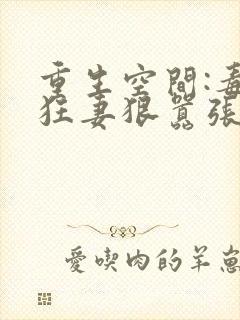 重生空間:毒
狂妻狠囂張
愛喫肉的羊崽